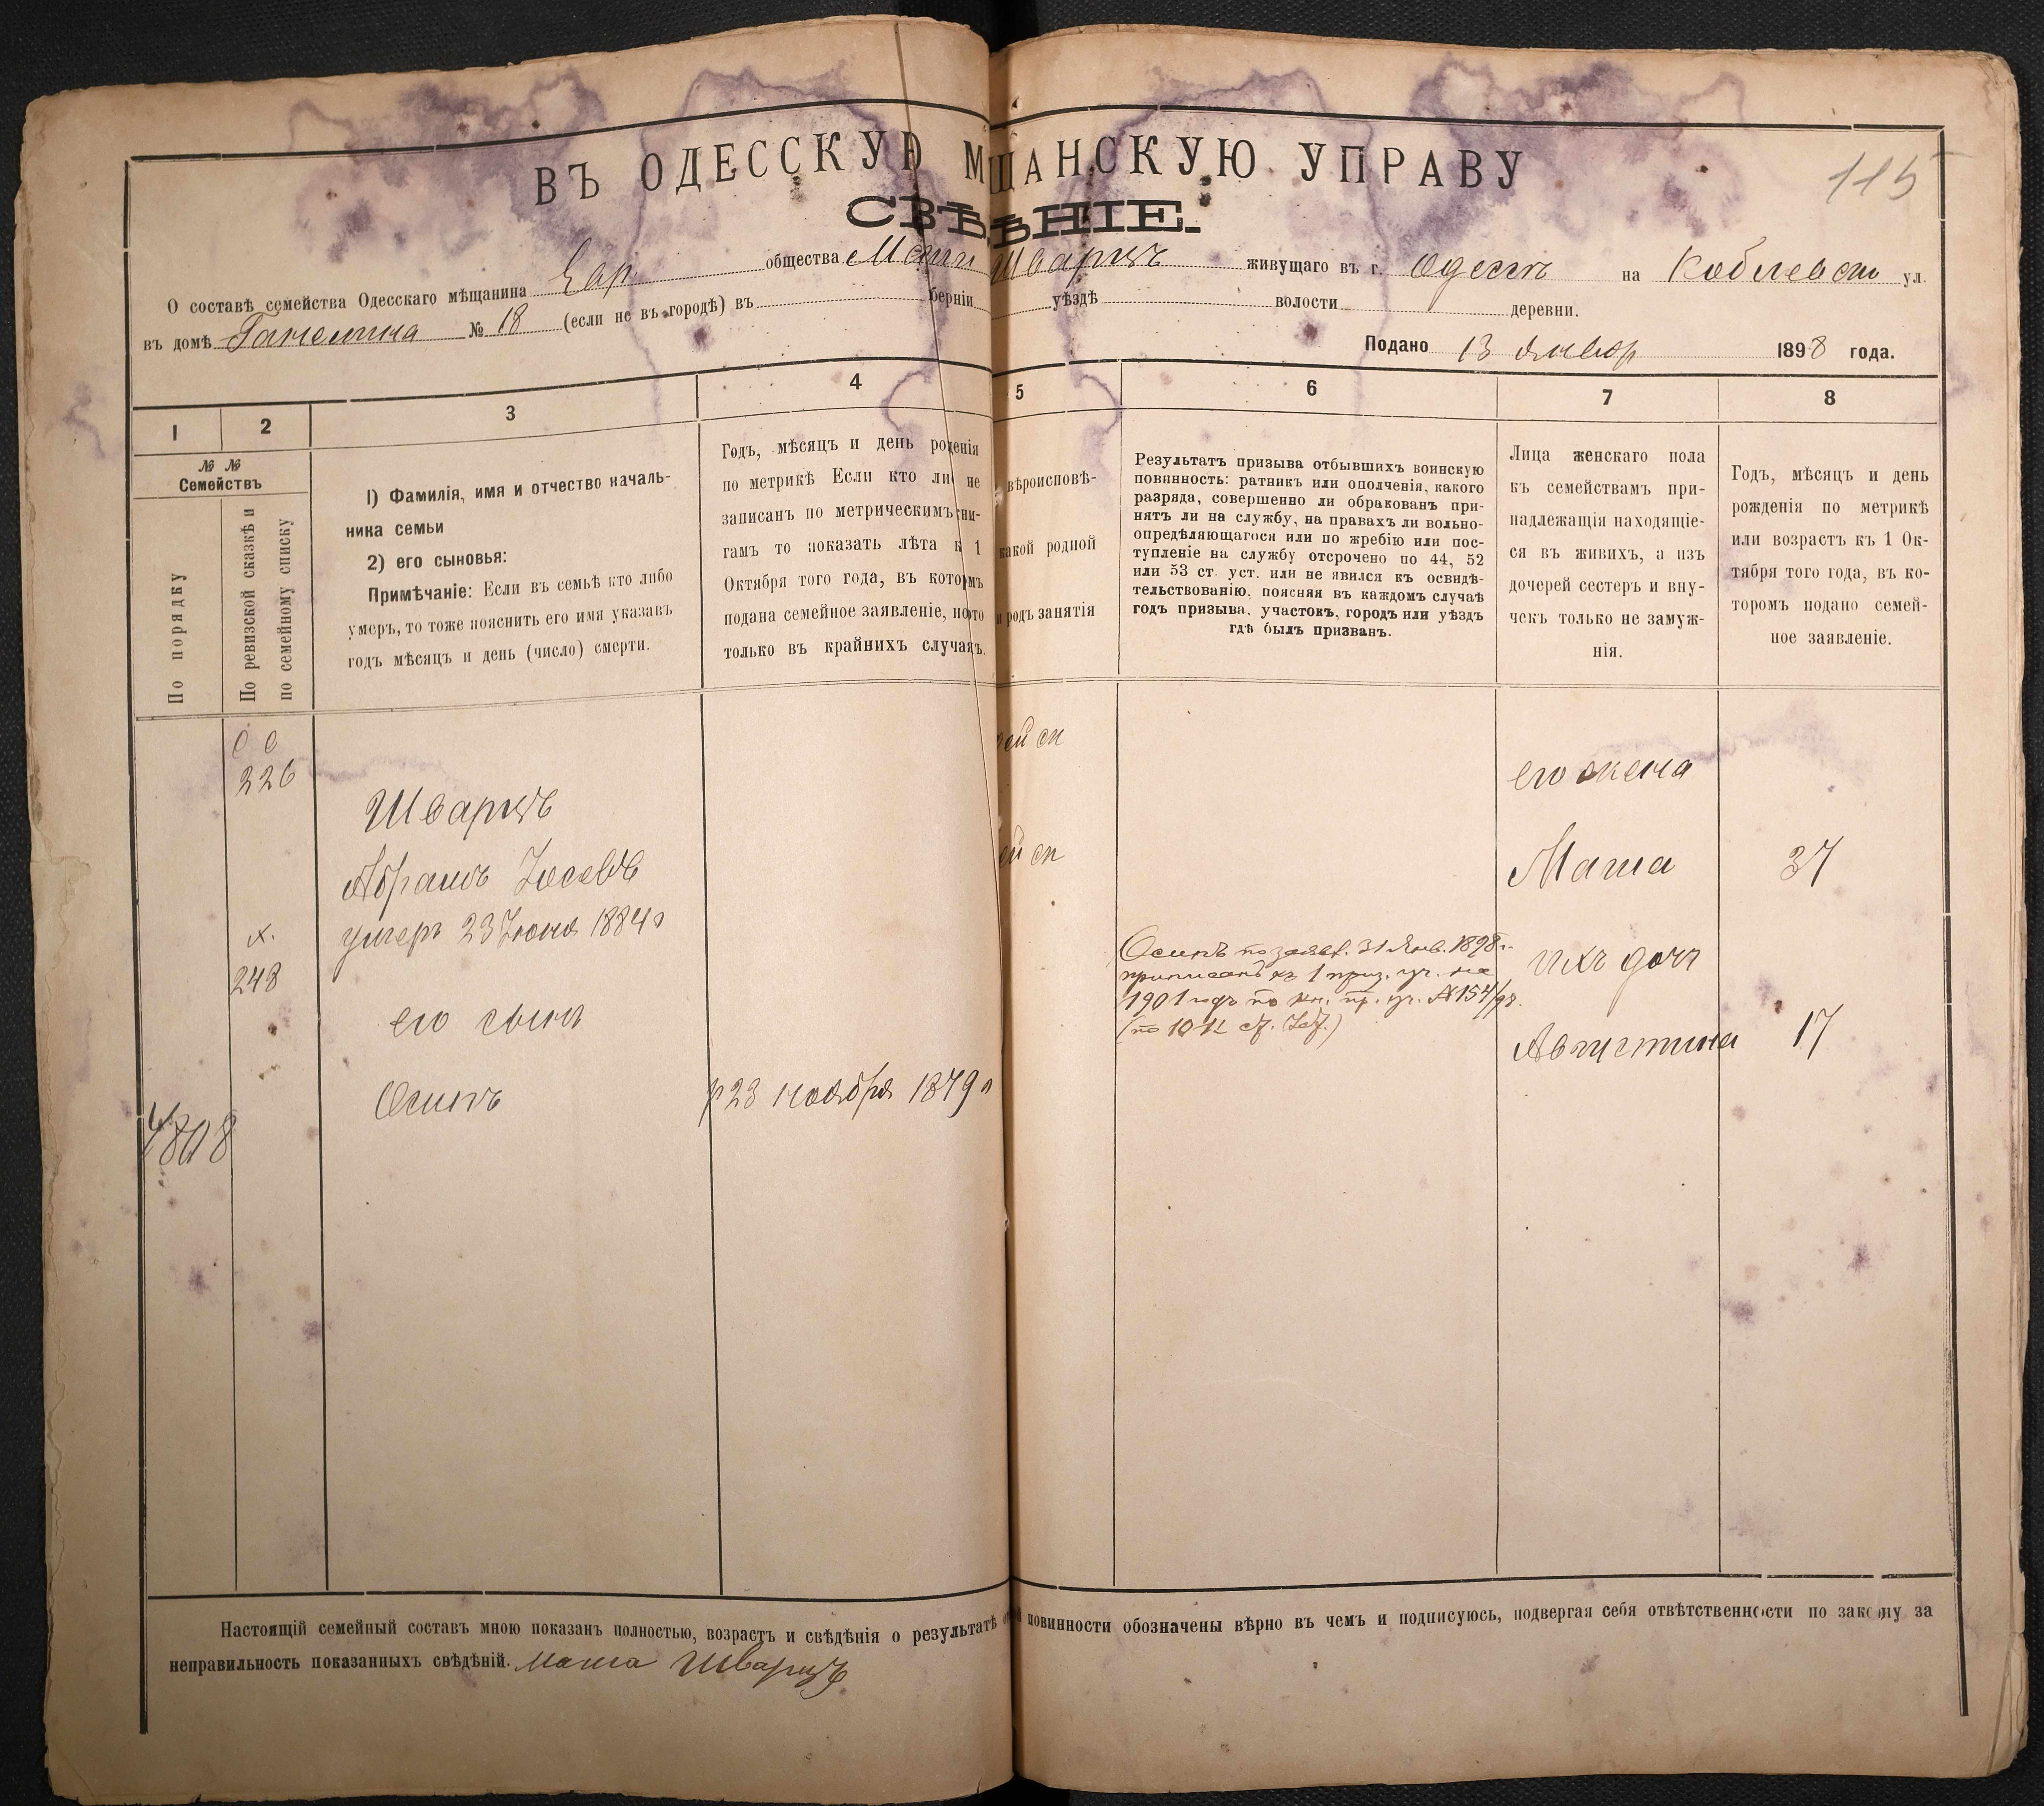 115
ВЪ ОДЕССКУЮ МѢЩАНСКУЮ УПРАВУ
СВѢ ѢНІЕ.
О составѣ семейства Одесскаго мѣщанина Евр. общества Маши Шварцъ живущаго въ г. Одессѣ на Коблевск ул.
въ домѣ Ганелина № 18 (если не въ городѣ) въ берніи уѣздѣ волости деревни.
Подано 13 Январ 1898 года.
1 2 3 4 5 6 7 8
№ №
Семействъ
По порядку
По ревизской сказкѣ и
по семейному списку
1) Фамилія, имя и отчество началь-
ника семьи
2) его сыновья:
Примѣчаніе: Если въ семьѣ кто либо
умеръ, то тоже пояснить его имя указавъ
годъ мѣсяцъ и день (число) смерти.
Годъ, мѣсяцъ и день ро енія
по метрикѣ Если кто ли не
записанъ по метрическимъ ни-
гамъ то показать лѣта к 1
Октября того года, въ кото мъ
подана семейное заявленіе, но то
только въ крайнихъ случа ъ.
вѣроисповѣ-
какой родной
и родъ занятія
Результатъ призыва отбывшихъ воинскую
повинность: ратникъ или ополченія, какого
разряда, совершенно ли обракованъ при-
нятъ ли на службу, на правахъ ли вольно-
опредѣляющагося или по жребію или пос-
тупленіе на службу отсрочено по 44, 52
или 53 ст. уст. или не явился къ освидѣ-
тельствованію, поясняя въ каждомъ случаѣ
годъ призыва, участокъ, городъ или уѣздъ
гдѣ былъ призванъ.
Лица женскаго пола
къ семействамъ при-
надлежащія находящіе-
ся въ живихъ, а изъ
дочерей сестеръ и вну-
чекъ только не замуж-
нія.
Годъ, мѣсяцъ и день
рожденія по метрикѣ
или возрастъ къ 1 Ок-
тября того года, въ ко-
торомъ подано семей-
ное заявленіе.
226
Шварцъ
Абрамъ Іосевъ
умеръ 23 Іюня 1884 г
х.
248
его сынъ
Осипъ
р 23 ноября 1879 г
4808
ей ск
ей ск
Осипъ по заявл. 31 Янв. 1898 г.
приписанъ къ 1 приз. уч. на
1901 годъ по кн. пр. уч. № 154/98.
его жена
Маша 37
ихъ доч
Августина 17
Настоящій семейный составъ мною показанъ полностью, возрастъ и свѣдѣнія о результатѣ о й повинности обозначены вѣрно въ чемъ и подписуюсь, подвергая себя отвѣтственности по закону за
неправильность показанныхъ свѣдѣній. Маша Шварцъ